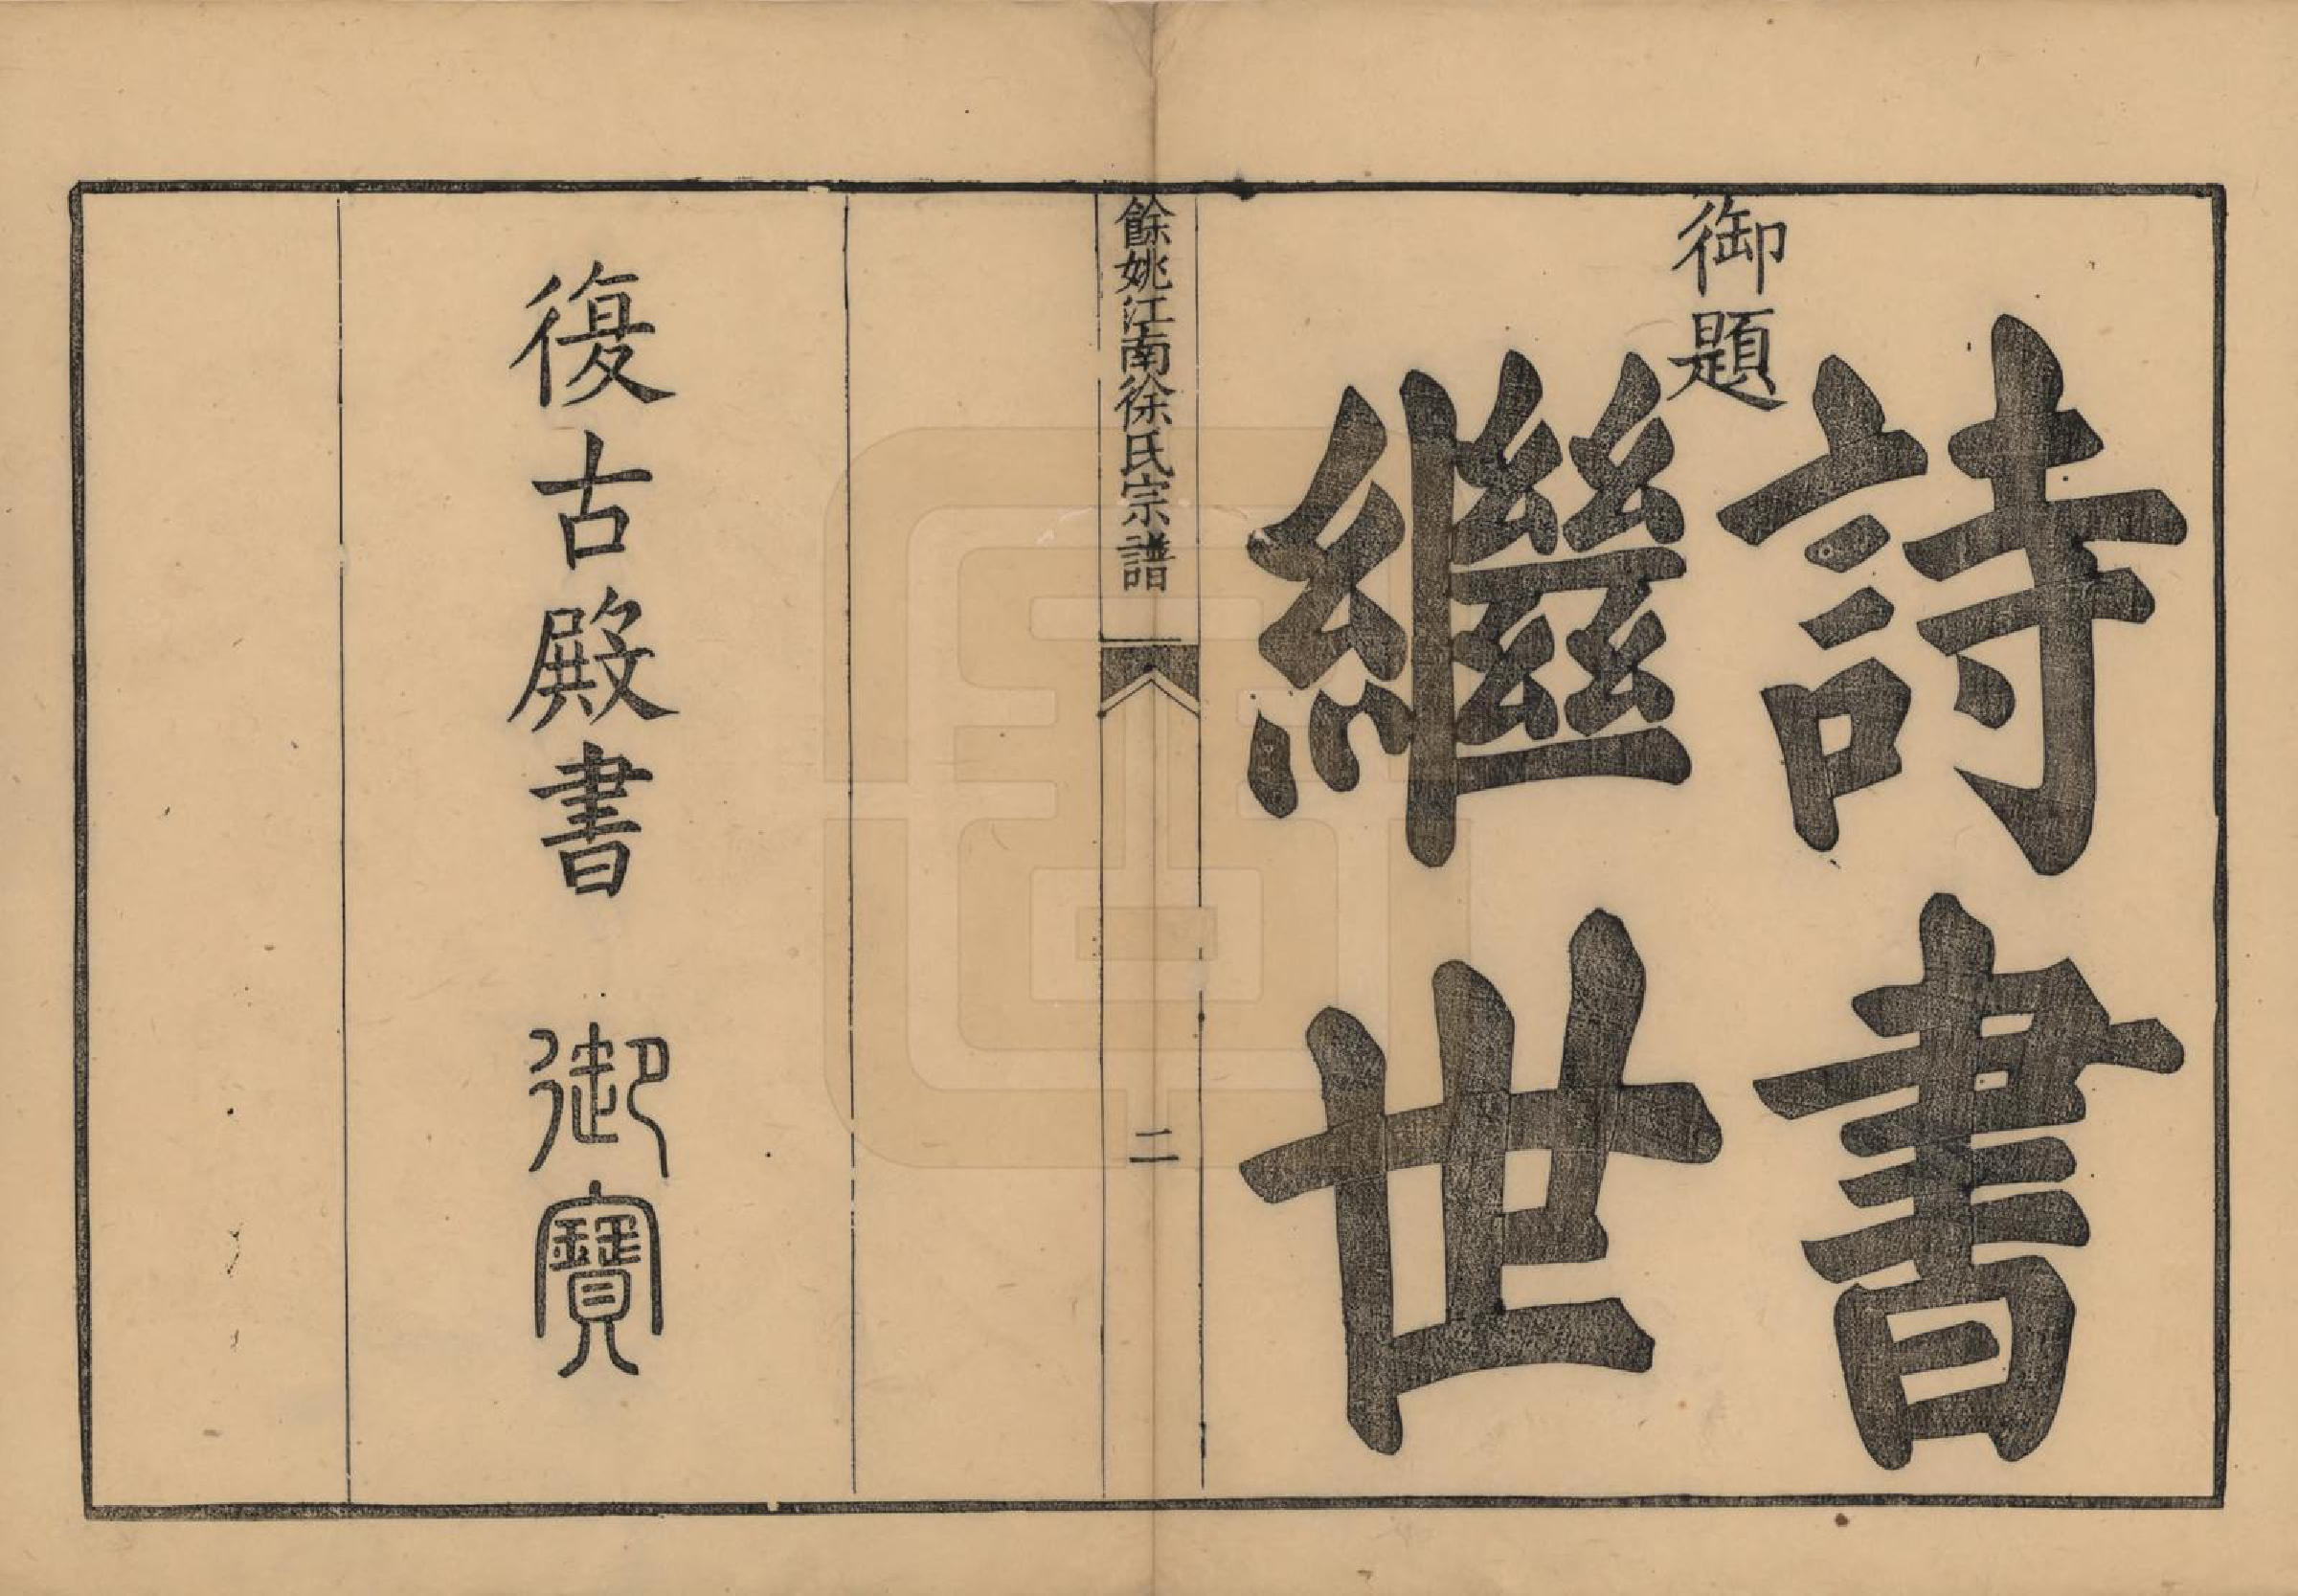 御題
詩書
繼世
餘姚江南徐氏宗譜
二
復古殿書 御寶